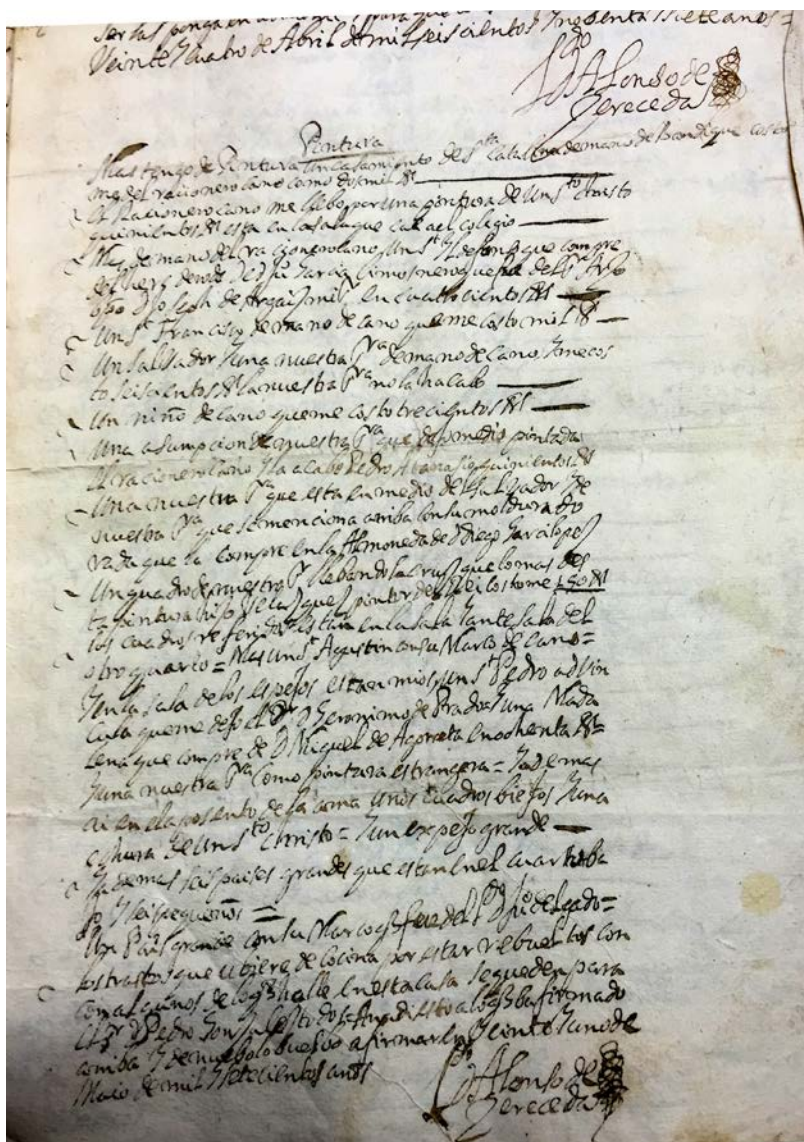 Veinte y cuatro de Abril de mil seiscientos y noventa y siete años =
Ldo Alonso de
Zereceda
Pintura
Mas tengo de Pintura un casamiento de Sta Catalina de mano de que costo
me del racionero cano como dos mil Rs
El Racionero cano me llebo por una pintura de un Sto Christo
quinientos Rs esta en la sala que cae al colegio
Mas de mano del racionero cano, un St Yldefonso que compre
de Garcia limosnero que fue del Sr Arso
bpo D Joseph de Argaiz mi Sr en cuatrocientos Rs
Un St Francisco de mano de cano que me costo mil Rs
Un Salbador y una nuestra Sra de mano de cano, y me cos
to seiscientos Rs la nuestra Sra no la hacabo
Un niño de cano que me costo trecientos Rs
Una asumpcion de nuestra Sra que dejo medio pintada
el racionero cano y la acabo Pedro Atanasio quinientos Rs
Una nuestra Sra que esta en medio del Salbador y de
nuestra Sra que se menciona arriba con su moldura do
rada que la compre en la Almoneda de D Diego Garcilopez
Un quadro de nuestro Sr llebando la cruz que lo mas des
ta pintura hizo pintor del Rei costome 150 Rs
los cuadros referidos estan en la sala y antesala del
otro quarto = Mas un St Agustin con su Marco de cano =
Y en la sala de los espejos estan mios, un St Pedro ad Vin
cula que me dejo el Dr D Geronimo de Prado y una Mada
lena que compre de D Miguel de Agorreta en ochenta Rs =
y una nuestra Sra como pintura estrangera = y ademas
ai en el aposento de la cama unos cuadros biejos y una
echura de un Sto Christo = y un expejo grande
Y ademas seis paises grandes que estan en el cuarto ba
jo y seis pequeños =
Un Pais grande con su Marco q fue del Ldo Ju Delgado =
los trastos que ubiere de cocina por estar rebueltos con
como algunos de los q se halle en esta casa se queden para
el Sr D Pedro todo lo
arriba y de nuebo lo buelbo a firmar en Veinte y uno de
Maio de mil y setecientos años
Ldo Alonso de
Zereceda